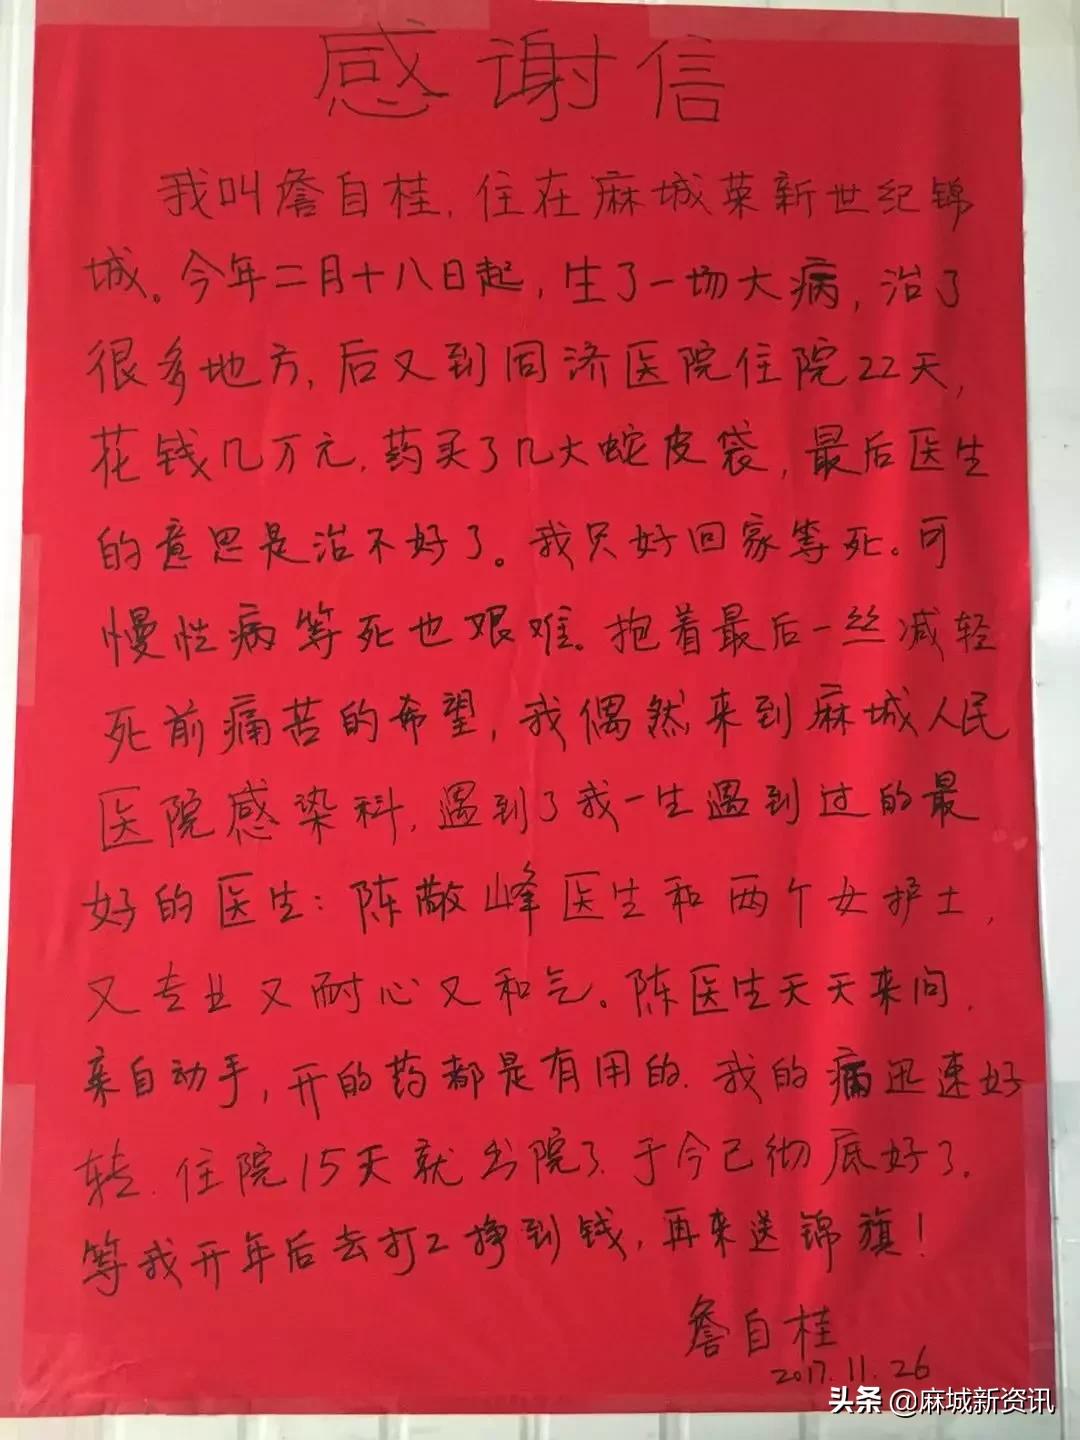 感谢信
我叫詹自桂，住在麻城菜新世纪锦
城。今年二月十八日起，生了一场大病，治了
很多地方，后又到同济医院住院22天，
花钱几万元，药买了几大蛇皮袋，最后医生
的意思是治不好了。我只好回家等死。可
慢性病等死也艰难。抱着最后一丝减轻
死前痛苦的希望，我偶然来到麻城人民
医院感染科，遇到了我一生遇到过的最
好的医生：陈敬峰医生和两个女护士，
又专业又耐心又和气。陈医生天天来问，
亲自动手，开的药都是有用的.我的病迅速好
转.住院15天就出院了.于今已彻底好了。
等我开年后去打工挣到钱，再来送锦旗！
詹自桂
2017.11.26
头条@麻城新资讯